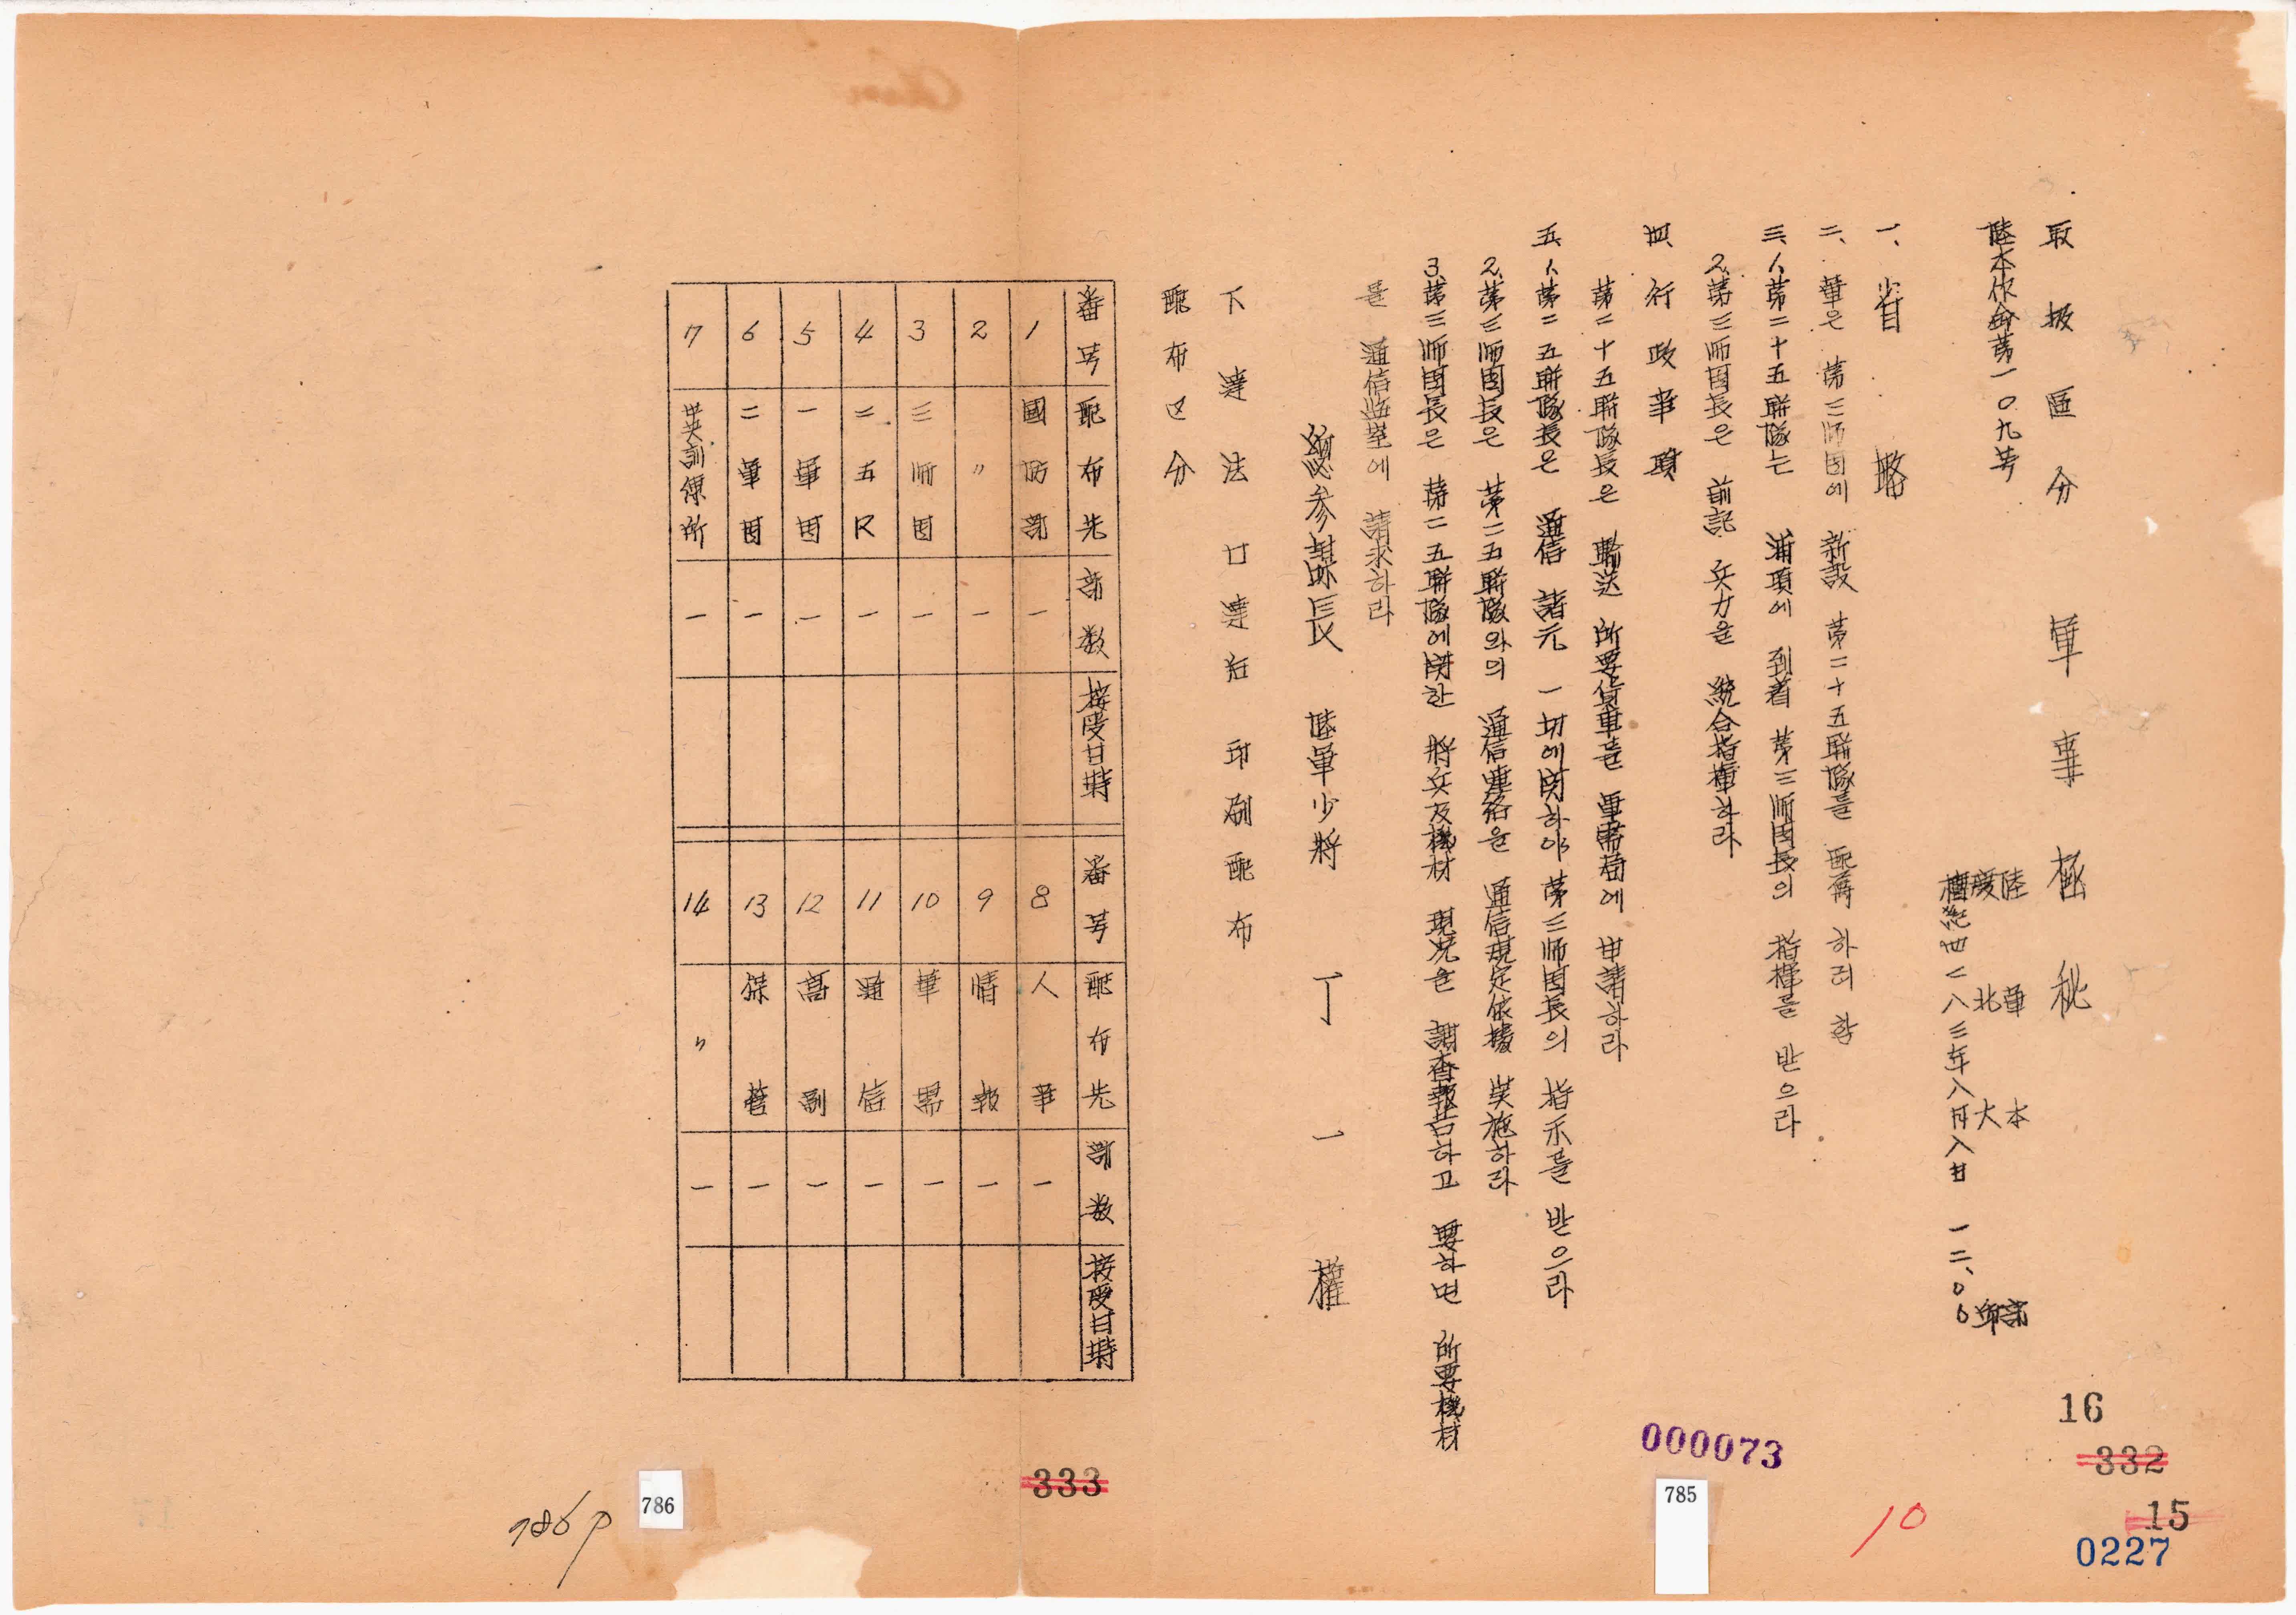 取扱區分 軍事極秘
陸本作命第一〇九号
陸軍本部
慶北大邱
檀紀四二八三年八月八日 一二、〇〇
一、省略
二、軍은 第三師団에 新設 第二十五聯隊를 配屬 하려 함
三、1、第二十五聯隊는 浦項에 到着 第三師団長의 指揮를 받으라
2、第三師団長은 前記 兵力을 統合指揮하라
四、行政事項
第二十五聯隊長은 輸送 所要貨車를 軍需局에 申請하라
五、1、第二五聯隊長은 通信 諸元 一切에関하야 第三師団長의 指示를 받으라
2、第三師団長은 第二五聯隊와의 通信連絡을 通信規定依據 実施하라
3、第三師団長은 第二五聯隊에関한 將兵及機材 現況을 調査報告하고 要하면 所要機材
를 通信監室에 請求하라
総参謀長 陸軍少將 丁一權
下達法 口達后 印刷配布
配布区分
番号 配布先 部数 接受日時 番号 配布先 部数 接受日時
1 國防部 一 8 人事 一
2 〃 一 9 情報 一
3 三師団 一 10 軍需 一
4 二五R 一 11 通信 一
5 一軍団 一 12 高副 一
6 二軍団 一 13 保管 一
7 中央訓練所 一 14 〃 一
16
332
15
0227
10
000073
785
333
786
786 P